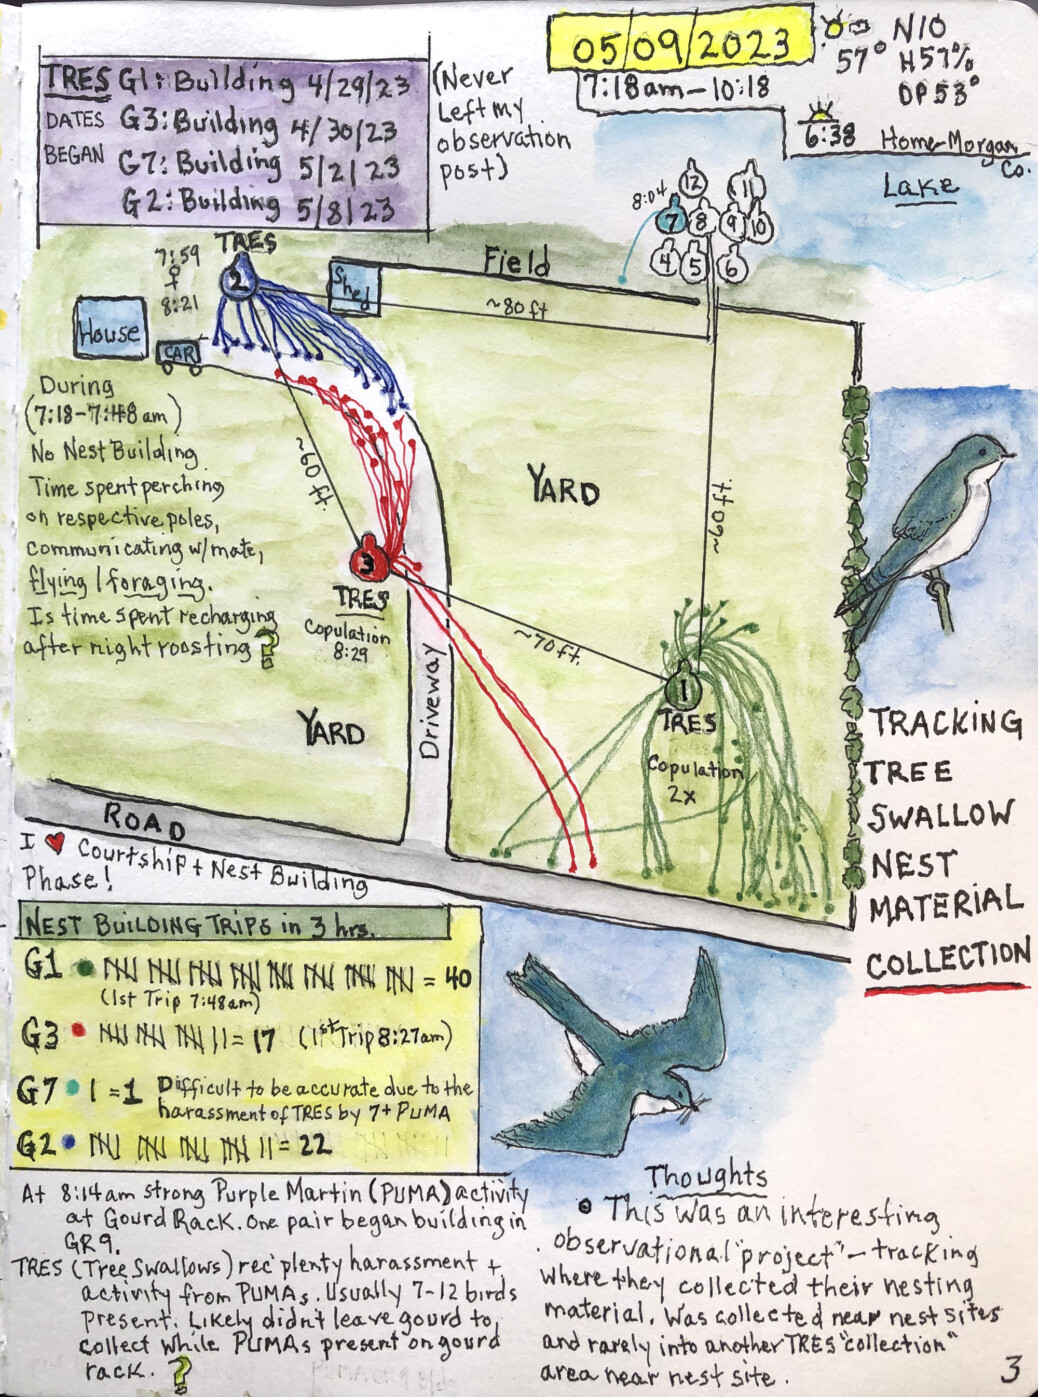 05/09/2023
7:18am - 10:18
N10
57° H57%
DP 53°
6:38 Home-Morgan Co.
TRES G1: Building 4/29/23
DATES G3: Building 4/30/23
BEGAN G7: Building 5/2/23
G2: Building 5/8/23
(Never
Left my
observation
post)
Lake
12 11
8:04 7 8 9 10
4 5 6
Field
TRES
7:59
2
8:21
Shed
~80 ft
House
CAR
During
(7:18-7:48 am)
No Nest Building
Time spent perching
on respective poles,
communicating w/mate,
flying / foraging.
Is time spent recharging
after night roosting ?
~60 ft.
YARD
~60 ft.
3
TRES
Copulation
8:29
~70 ft.
1
TRES
Copulation
2x
Driveway
YARD
ROAD
TRACKING
TREE
SWALLOW
NEST
MATERIAL
COLLECTION
I ♥ Courtship + Nest Building
Phase!
NEST BUILDING TRIPS in 3 hrs.
G1 = 40
(1st Trip 7:48am)
G3 = 17 (1st Trip 8:27am)
G7 1 = 1 Difficult to be accurate due to the
harassment of TRES by 7+ PUMA
G2 = 22
At 8:14am strong Purple Martin (PUMA) activity
at Gourd Rack. One pair began building in
GR 9.
TRES (Tree Swallows) rec' plenty harassment +
activity from PUMAs. Usually 7-12 birds
present. Likely didn't leave gourd to
collect while PUMAs present on gourd
rack. ?
Thoughts
• This was an interesting
observational "project" - tracking
where they collected their nesting
material. Was collected near nest sites
and rarely into another TRES "collection"
area near nest site.
3